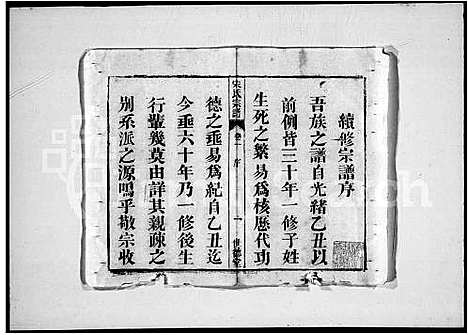 續修宗譜序
吾族之譜自光緒乙丑以
前側皆三十年一修予姓
生死之繫易為核歷代功
宋氏宗譜 卷一 序 一 世德堂
德之垂易為紀自乙丑迄
今垂六十年乃一修後生
行輩幾莫由詳其親疎之
別系派之源嗚乎敬宗收